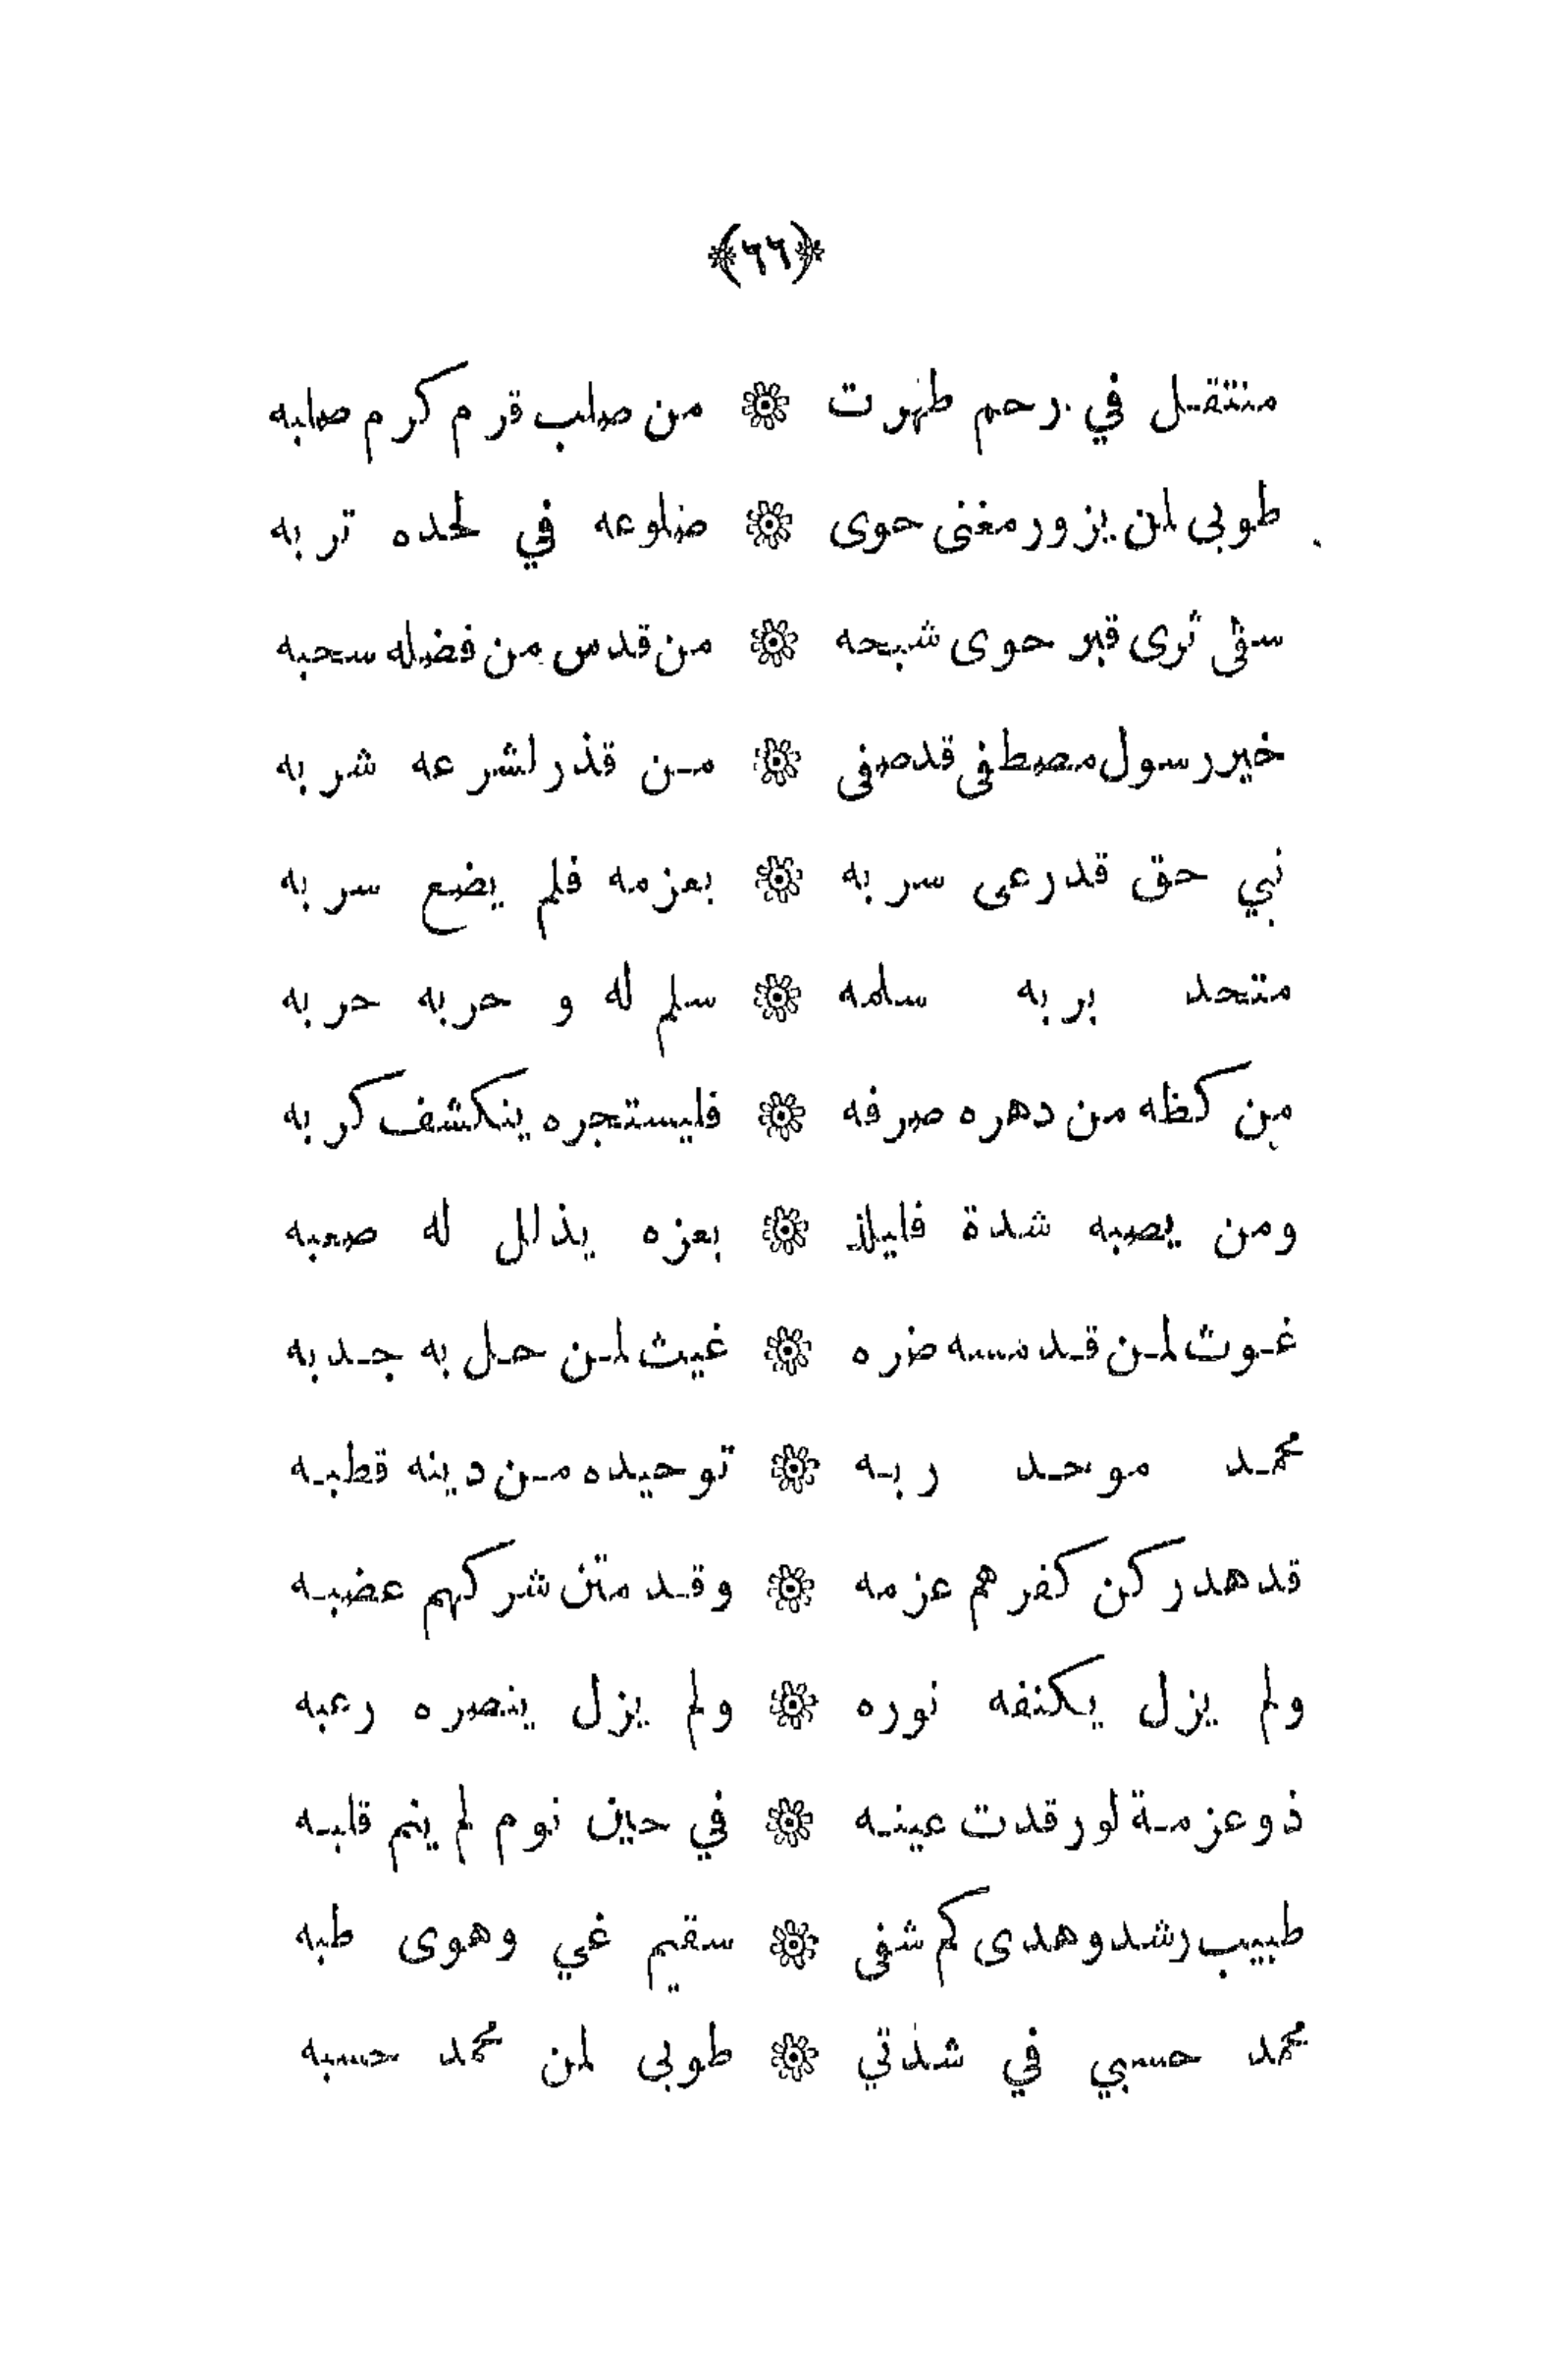 ﴿٦٦﴾
منتقل في رحم طهرت من صلب قرم كرم صلبه
طوبى لمن يزور مغنى حوى ضلوعه في لحده تربه
سقى ثرى قبر حوى شبحه من قدس من فضله سحبه
خير رسول مصطفى قد صفى من قذر لشرعه شربه
نبي حق قد رعى سربه بعزمه فلم يضع سربه
متحد بربه سلمه سلم له و حربه حربه
من كظه من دهره صرفه فليستجره ينكشف كربه
ومن يصبه شدة فليلذ بعزه يذلل له صعبه
غوث لمن قد مسه ضره غيث لمن حل به جدبه
محمد موحد ربه توحيده من دينه قطبه
قد هد ركن كفرهم عزمه وقد متن شركهم عضبه
ولم يزل يكنفه نوره ولم يزل ينصره رعبه
ذو عزمة لو رقدت عينه في حين نوم لم ينم قلبه
طبيب رشد وهدى كم شفى سقيم غي وهوى طبه
محمد حسبي في شدتي طوبى لمن محمد حسبه